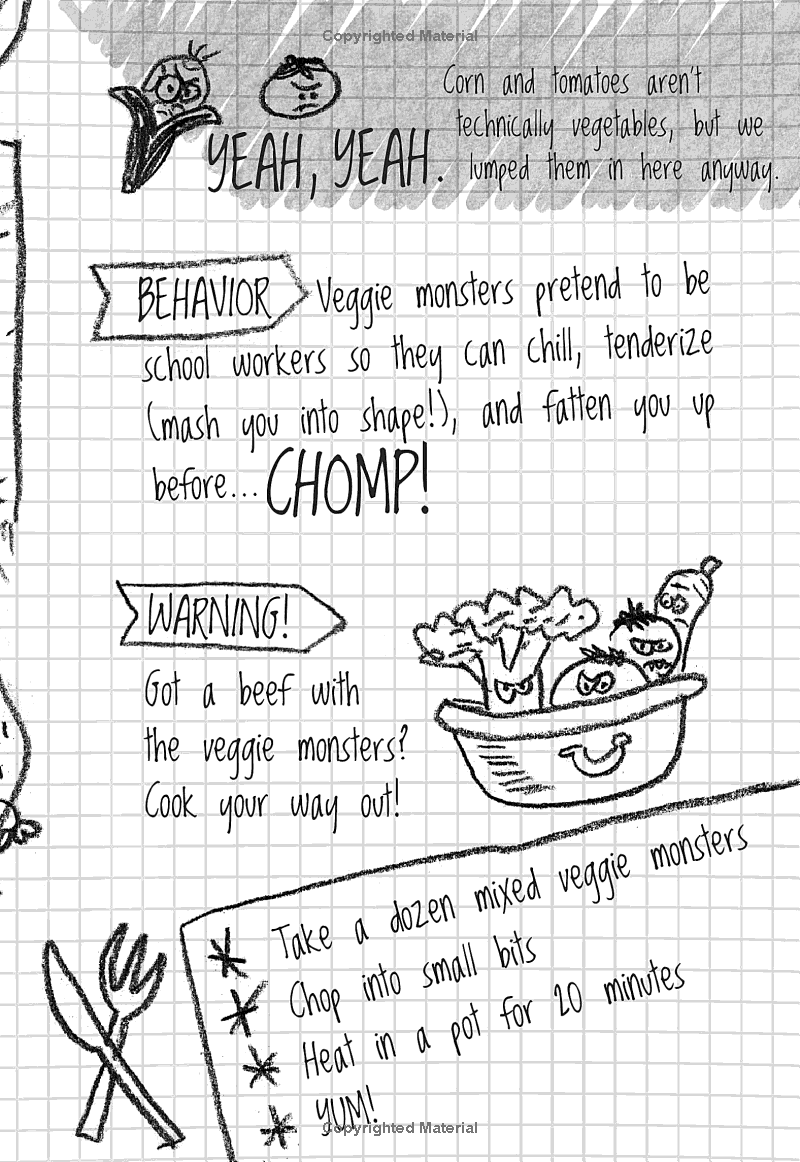 Copyrighted Material
Corn and tomatoes aren't
technically vegetables, but we
YEAH, YEAH. lumped them in here anyway.
BEHAVIOR Veggie monsters pretend to be
school workers so they can chill, tenderize
(mash you into shape!), and fatten you up
before... CHOMP!
WARNING!
Got a beef with
the veggie monsters?
Cook your way out!
* Take a dozen mixed veggie monsters
* Chop into small bits
* Heat in a pot for 20 minutes
* YUM!
Copyrighted Material